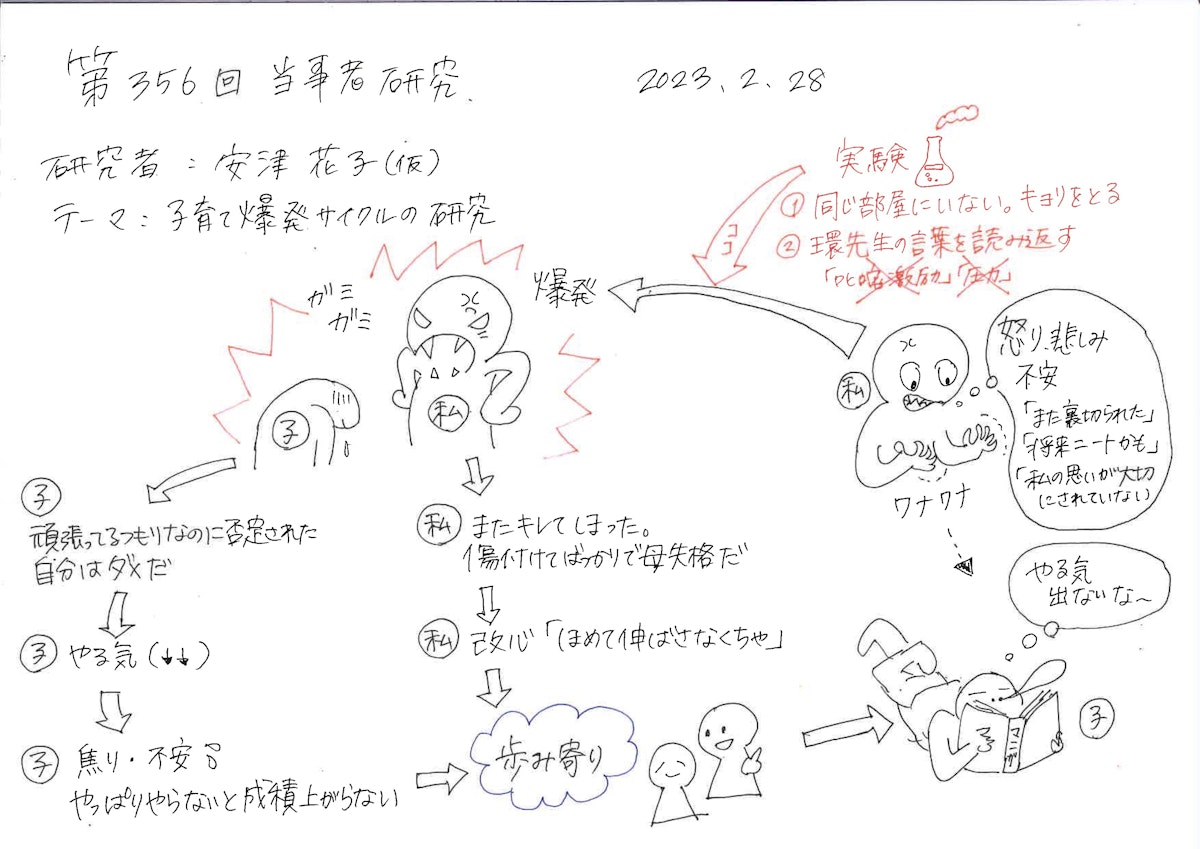 第356回 当事者研究
2023.2.28
研究者：安津 花子(仮)
テーマ：子育て爆発サイクルの研究
実験
① 同じ部屋にいない。キョリをとる
② 環先生の言葉を読み返す
「叱咤激励」「圧力」
ココ
爆発
ガミ
ガミ
私
子
私
怒り、悲しみ
不安
「また裏切られた」
「将来ニートかも」
「私の思いが大切
にされていない」
ワナワナ
子
頑張ってるつもりなのに否定された
自分はダメだ
子 やる気(↓↓)
子 焦り・不安
やっぱりやらないと成績上がらない
私 またキレてしまった。
傷付けてばっかりで母失格だ
私 改心「ほめて伸ばさなくちゃ」
歩み寄り
やる気
出ないな〜
マンガ
子